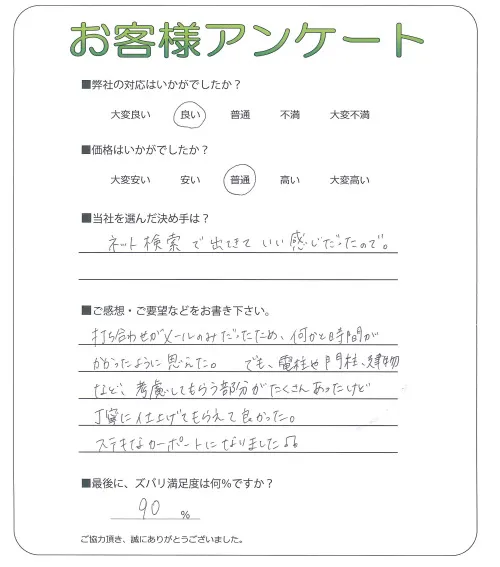 お客様アンケート
■弊社の対応はいかがでしたか？
大変良い 良い 普通 不満 大変不満
■価格はいかがでしたか？
大変安い 安い 普通 高い 大変高い
■当社を選んだ決め手は？
ネット検索で出てきていい感じだったので。
■ご感想・ご要望などをお書き下さい。
打ち合わせがメールのみだったため、何かと時間が
かかったように思えた。 でも、電柱や門柱、建物
など、考慮してもらう部分がたくさんあったけど
丁寧に仕上げてもらえて良かった。
ステキなカーポートになりました♫
■最後に、ズバリ満足度は何％ですか？
90 ％
ご協力頂き、誠にありがとうございました。